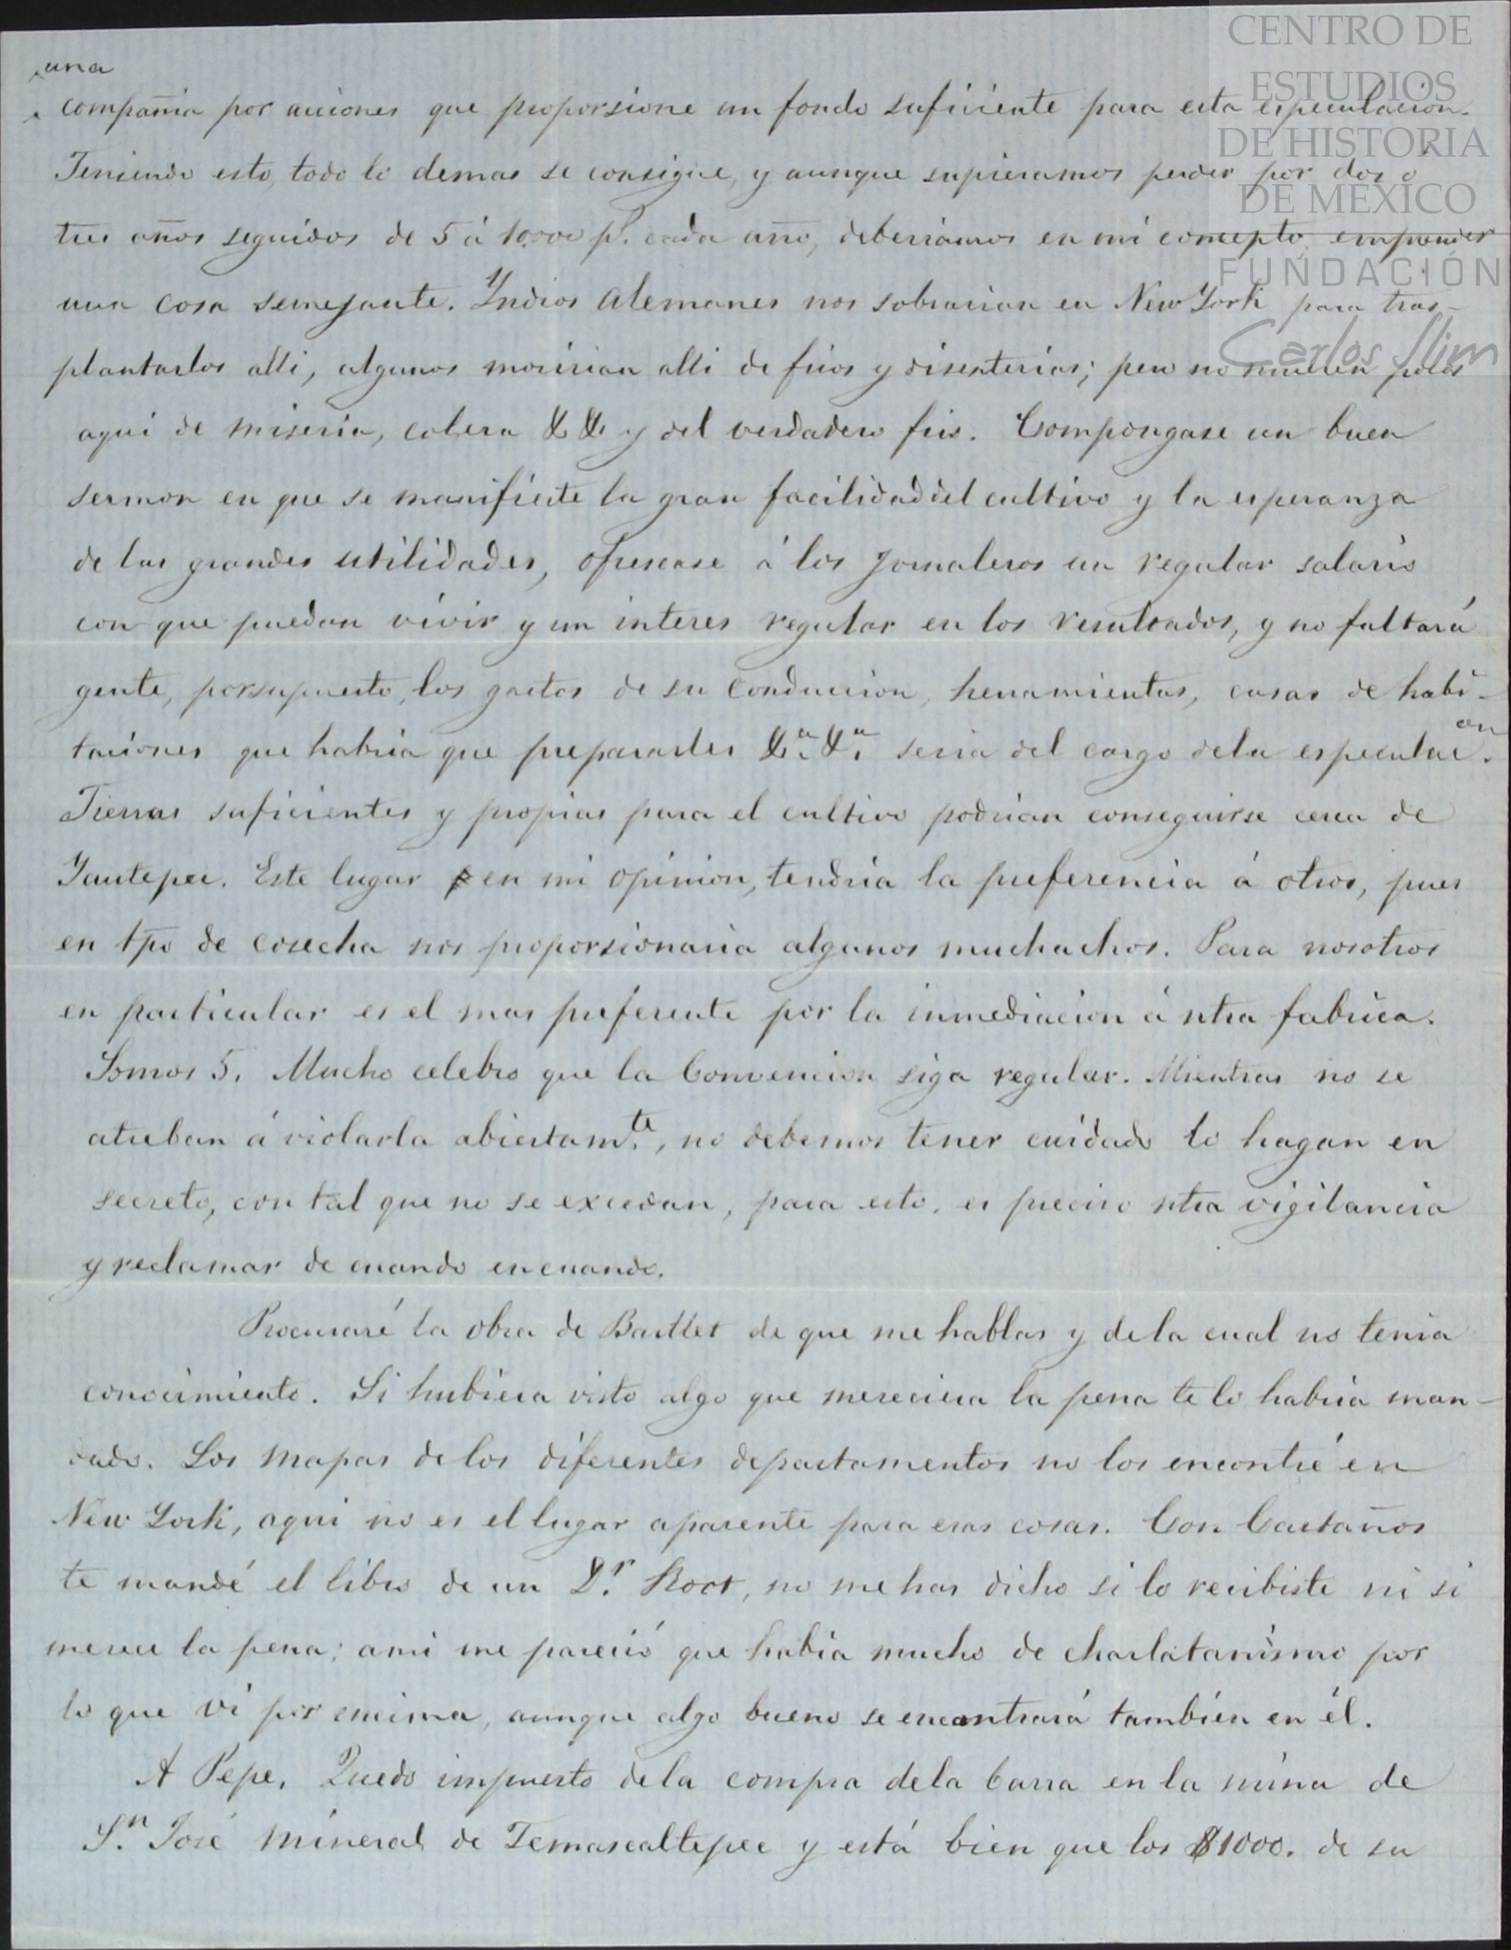 CENTRO DE
ESTUDIOS
DE HISTORIA
DE MÉXICO
FUNDACIÓN
Carlos Slim
una
compañia por acciones que proporsione un fondo suficiente para esta especulacion.
Teniendo esto, todo lo demas se consigue, y aunque supieramos perder por dos ó
tres años seguidos de 5 á 10,000 p.s cada año, deberiamos en mi concepto emprender
una cosa semejante. Yndios Alemanes nos sobrarian en New York para tras-
plantarlos alli, algunos moririan alli de frios y disenterias; pero no mueren pocos
aqui de miseria, colera & & y del verdadero frio. Compongase un buen
sermon en que se manifieste la gran facilidad del cultivo y la esperanza
de las grandes utilidades, ofrescase á los jornaleros un regular salario
con que puedan vivir y un interes regular en los resultados, y no faltará
gente, porsupuesto, los gastos de su conduccion, herramientas, casas de habi-
taciones que habria que prepararles &.a &.a seria del cargo dela especulac.on
Tierras suficientes y propias para el cultivo podrian conseguirse cerca de
Yautepec. Este lugar en mi opinion, tendria la preferencia á otros, pues
en tpo de cosecha nos proporsionaria algunos muchachos. Para nosotros
en particular es el mas preferente por la inmediacion á ntra fabrica.
Somos 5. Mucho celebro que la Convencion siga regular. Mientras no se
atreban á violarla abiertam.te, no debemos tener cuidado lo hagan en
secreto, con tal que no se excedan, para esto, es preciso ntra vigilancia
y reclamar de cuando en cuando.
Procuraré la obra de Bartlet de que me hablas y de la cual no tenia
conocimiento. Si hubiera visto algo que mereciera la pena te lo habria man-
dado. Los mapas de los diferentes departamentos no los encontré en
New York, aqui no es el lugar aparente para esas cosas. Con Castaños
te mandé el libro de un D.r Root, no me has dicho si lo recibiste ni si
merece la pena; a mi me pareció que habia mucho de charlatanismo por
lo que vi por encima, aunque algo bueno se encontrará tambien en él.
A Pepe. Quedo impuesto dela compra dela barra en la mina de
S.n José mineral de Temascaltepec y está bien que los $1000. de su